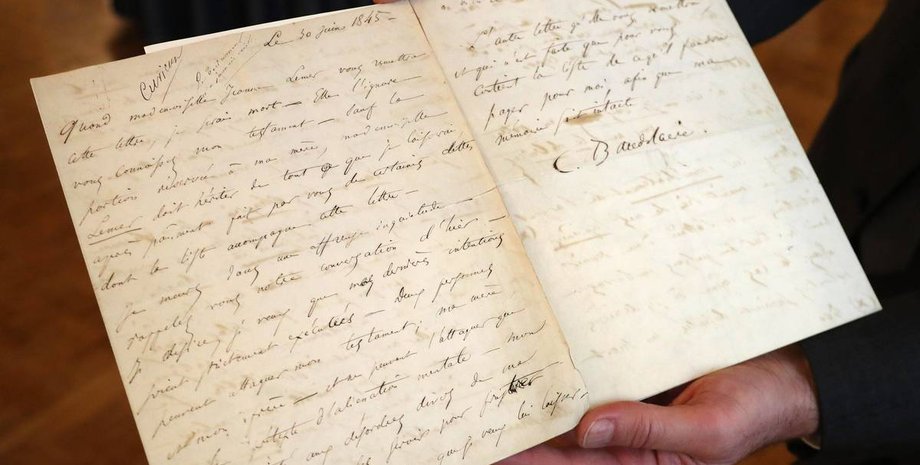 Le 30 juin 1845 –
Curieux
Quand mademoiselle Jeanne Lemer vous remettra
cette lettre, je serai mort – Elle l'ignore
vous connaissez mon testament – Sauf la
portion réservée à ma mère, mademoiselle
Lemer doit hériter de tout ce que je laisserai
après paiement fait par vous de certaines dettes
dont la liste accompagne cette lettre –
Je meurs dans une affreuse inquiétude –
rappelez vous notre conversation d'hier –
Je désire, je veux que mes dernières intentions
soient strictement exécutées – Deux personnes
peuvent attaquer mon testament; ma mère
et mon frère – et ne peuvent l'attaquer que
prétexte d'aliénation mentale – mon
aux désordres divers de ma
servir pour frustrer
que je veux lui laisser.
autre lettre qu'elle vous remettra
et qui n'est faite que pour vous
contient la liste de ce qu'il faudra
payer pour moi, afin que ma
mémoire soit intacte.
C. Baudelaire.